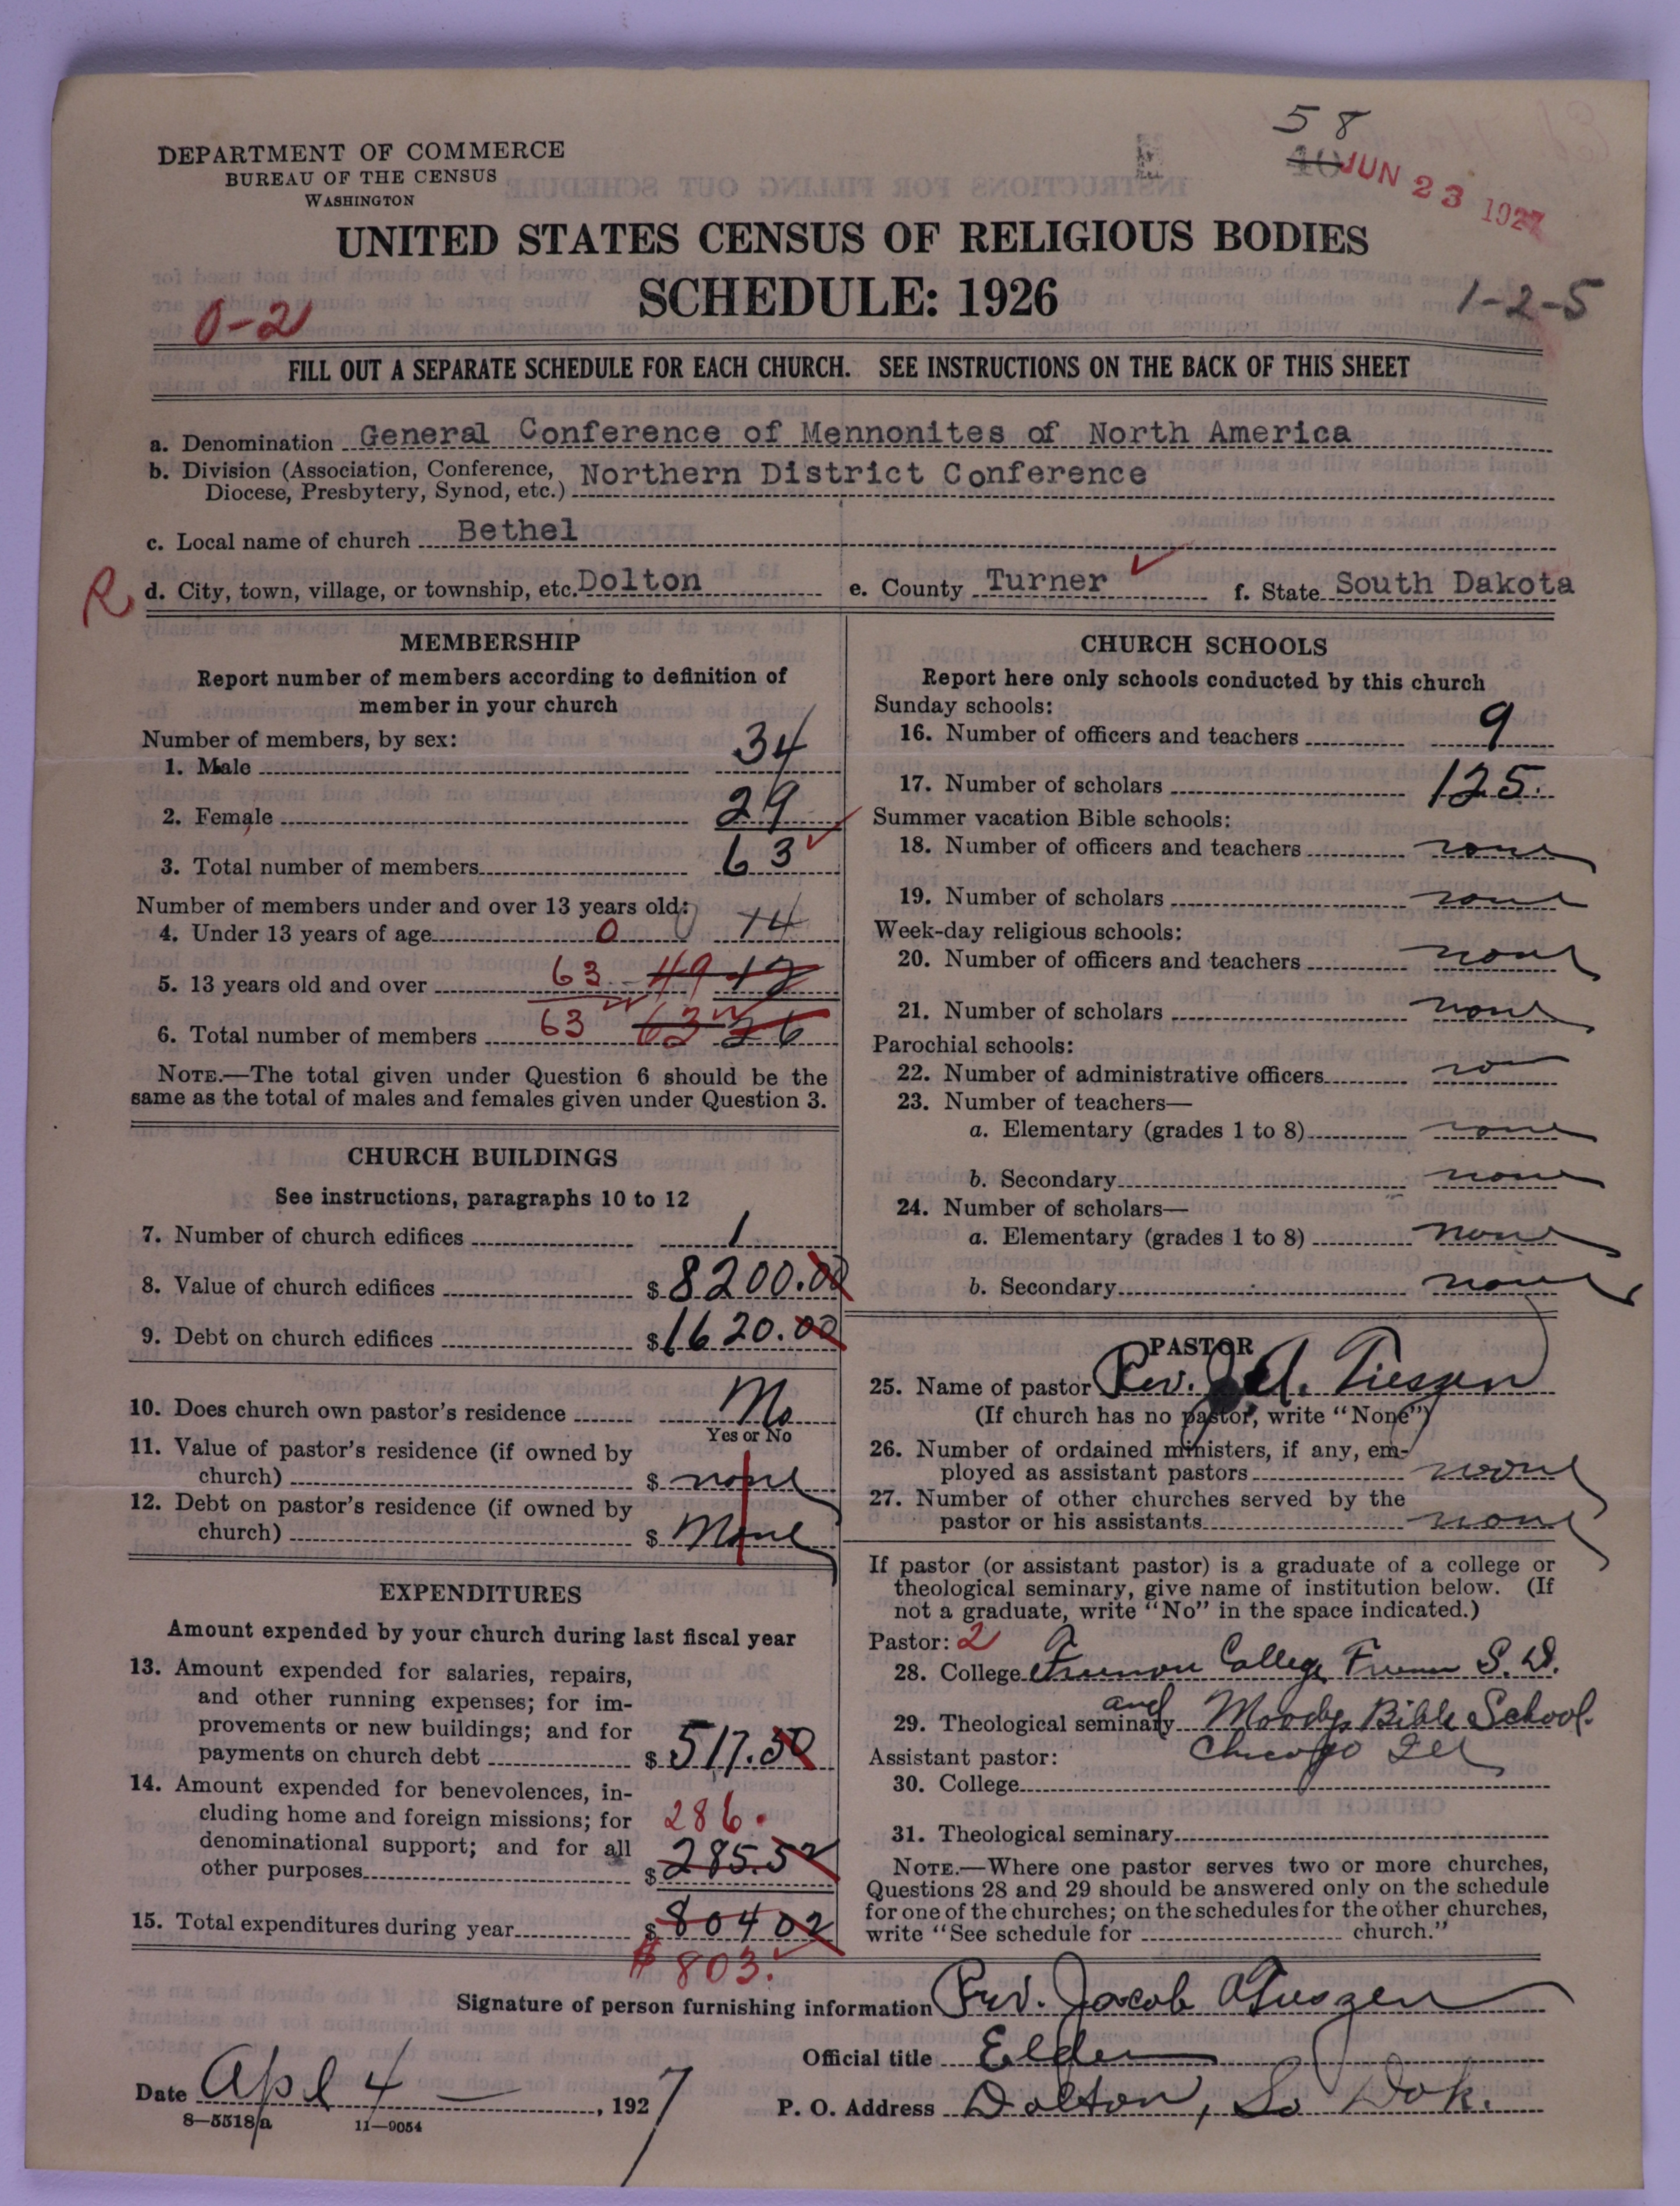 58
40 JUN 23 1927
DEPARTMENT OF COMMERCE
BUREAU OF THE CENSUS
WASHINGTON
UNITED STATES CENSUS OF RELIGIOUS BODIES
SCHEDULE: 1926
0-2
1-2-5
FILL OUT A SEPARATE SCHEDULE FOR EACH CHURCH. SEE INSTRUCTIONS ON THE BACK OF THIS SHEET
a. Denomination General Conference of Mennonites of North America
b. Division (Association, Conference, Diocese, Presbytery, Synod, etc.) Northern District Conference
c. Local name of church Bethel
R d. City, town, village, or township, etc. Dolton e. County Turner f. State South Dakota
MEMBERSHIP
Report number of members according to definition of
member in your church
Number of members, by sex:
1. Male 34
2. Female 29
3. Total number of members 63
Number of members under and over 13 years old:
4. Under 13 years of age 0 14
5. 13 years old and over 63 49 12
6. Total number of members 63 63 26
NOTE.—The total given under Question 6 should be the
same as the total of males and females given under Question 3.
CHURCH BUILDINGS
See instructions, paragraphs 10 to 12
7. Number of church edifices 1
8. Value of church edifices $8200.00
9. Debt on church edifices $1620.00
10. Does church own pastor's residence No
Yes or No
11. Value of pastor's residence (if owned by
church) $ none
12. Debt on pastor's residence (if owned by
church) $ None
EXPENDITURES
Amount expended by your church during last fiscal year
13. Amount expended for salaries, repairs,
and other running expenses; for im-
provements or new buildings; and for
payments on church debt $517.50
14. Amount expended for benevolences, in-
cluding home and foreign missions; for 286.
denominational support; and for all
other purposes $285.52
15. Total expenditures during year $80402
$803.
CHURCH SCHOOLS
Report here only schools conducted by this church
Sunday schools:
16. Number of officers and teachers 9
17. Number of scholars 125.
Summer vacation Bible schools:
18. Number of officers and teachers none
19. Number of scholars none
Week-day religious schools:
20. Number of officers and teachers none
21. Number of scholars none
Parochial schools:
22. Number of administrative officers no
23. Number of teachers—
a. Elementary (grades 1 to 8) none
b. Secondary none
24. Number of scholars—
a. Elementary (grades 1 to 8) none
b. Secondary none
PASTOR
25. Name of pastor Rev. J. A. Tieszen
(If church has no pastor, write "None")
26. Number of ordained ministers, if any, em-
ployed as assistant pastors none
27. Number of other churches served by the
pastor or his assistants none
If pastor (or assistant pastor) is a graduate of a college or
theological seminary, give name of institution below. (If
not a graduate, write "No" in the space indicated.)
Pastor: 2
28. College College S. D.
29. Theological seminary and Moodys Bible School.
Chicago Ill
Assistant pastor:
30. College
31. Theological seminary
NOTE.—Where one pastor serves two or more churches,
Questions 28 and 29 should be answered only on the schedule
for one of the churches; on the schedules for the other churches,
write "See schedule for church."
Signature of person furnishing information Rev. Jacob A Tieszen
Official title Elder
Date Apl 4 — , 1927
P. O. Address Dolton, So Dak.
8—5518a 11—9054